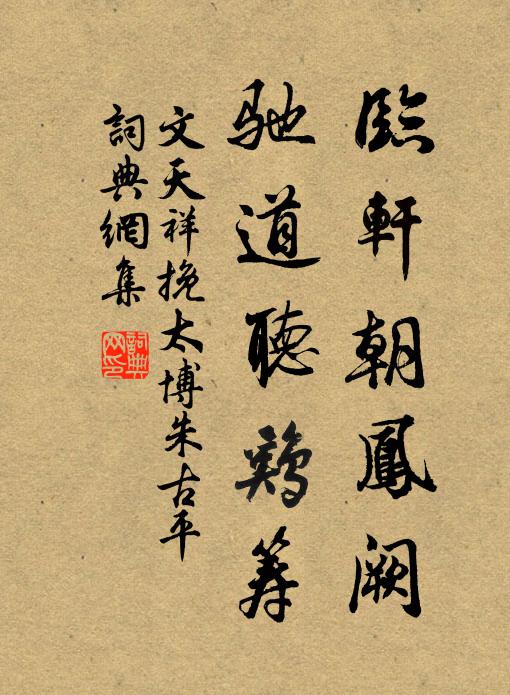 臨軒朝鳳闕
馳道聽鷄筹
文天祥挽太博朱古平
詞典網集
詞典網印